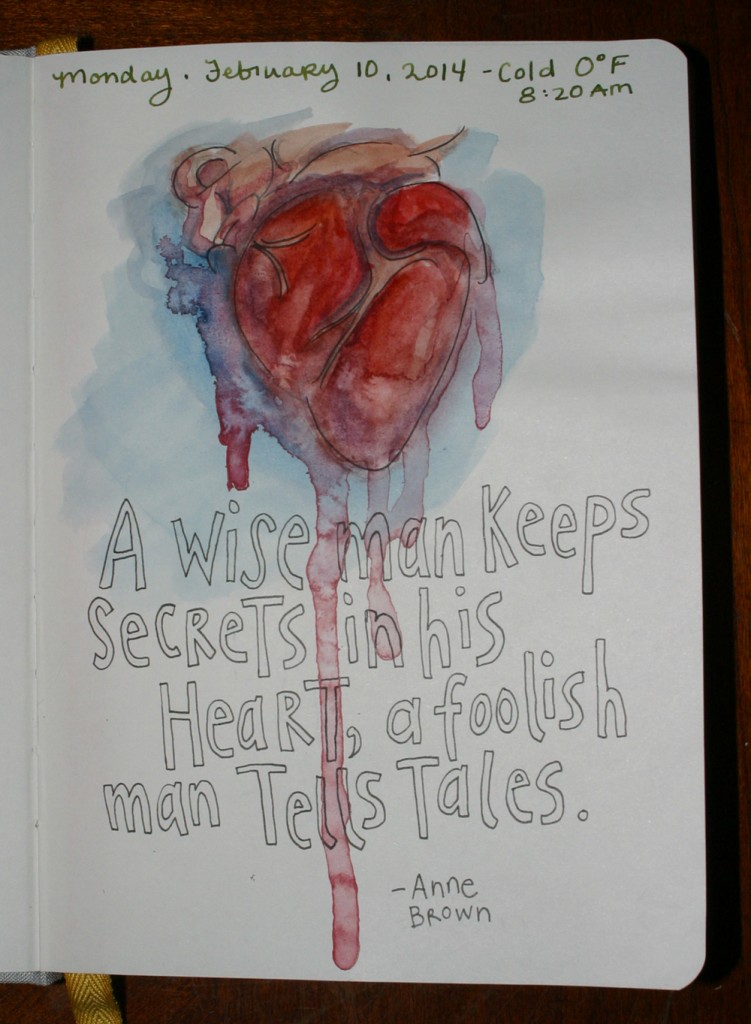 Monday. February 10, 2014 - Cold 0°F
8:20 AM
A wise man Keeps
SecReTs in his
HeaRT, a foolish
man Tells Tales.
- Anne
BROWN